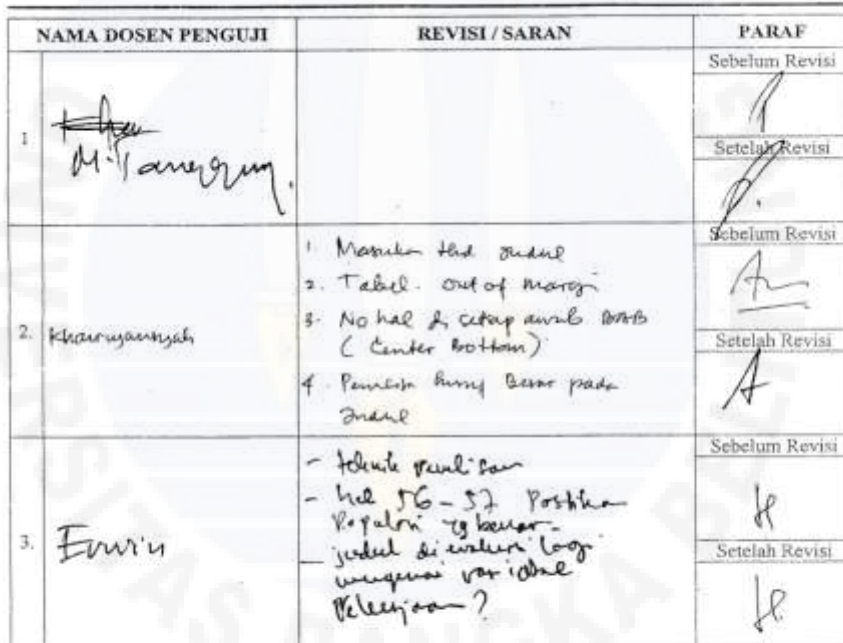 NAMA DOSEN PENGUJI
REVISI / SARAN
PARAF
1
Sebelum Revisi
Setelah Revisi
2.
Khairiyansyah
1. Masukan thd Judul
2. Tabel. out of margi
3. No hal di setiap awal BAB
( Center Bottom)
4. huruf Besar pada
Judul
Sebelum Revisi
Setelah Revisi
3.
Erwin
- teknik penulisan
- hal 56 - 57 Pastikan
Populasi yg benar
- judul di evaluasi lagi
mengenai variabel
Pekerjaan?
Sebelum Revisi
Setelah Revisi